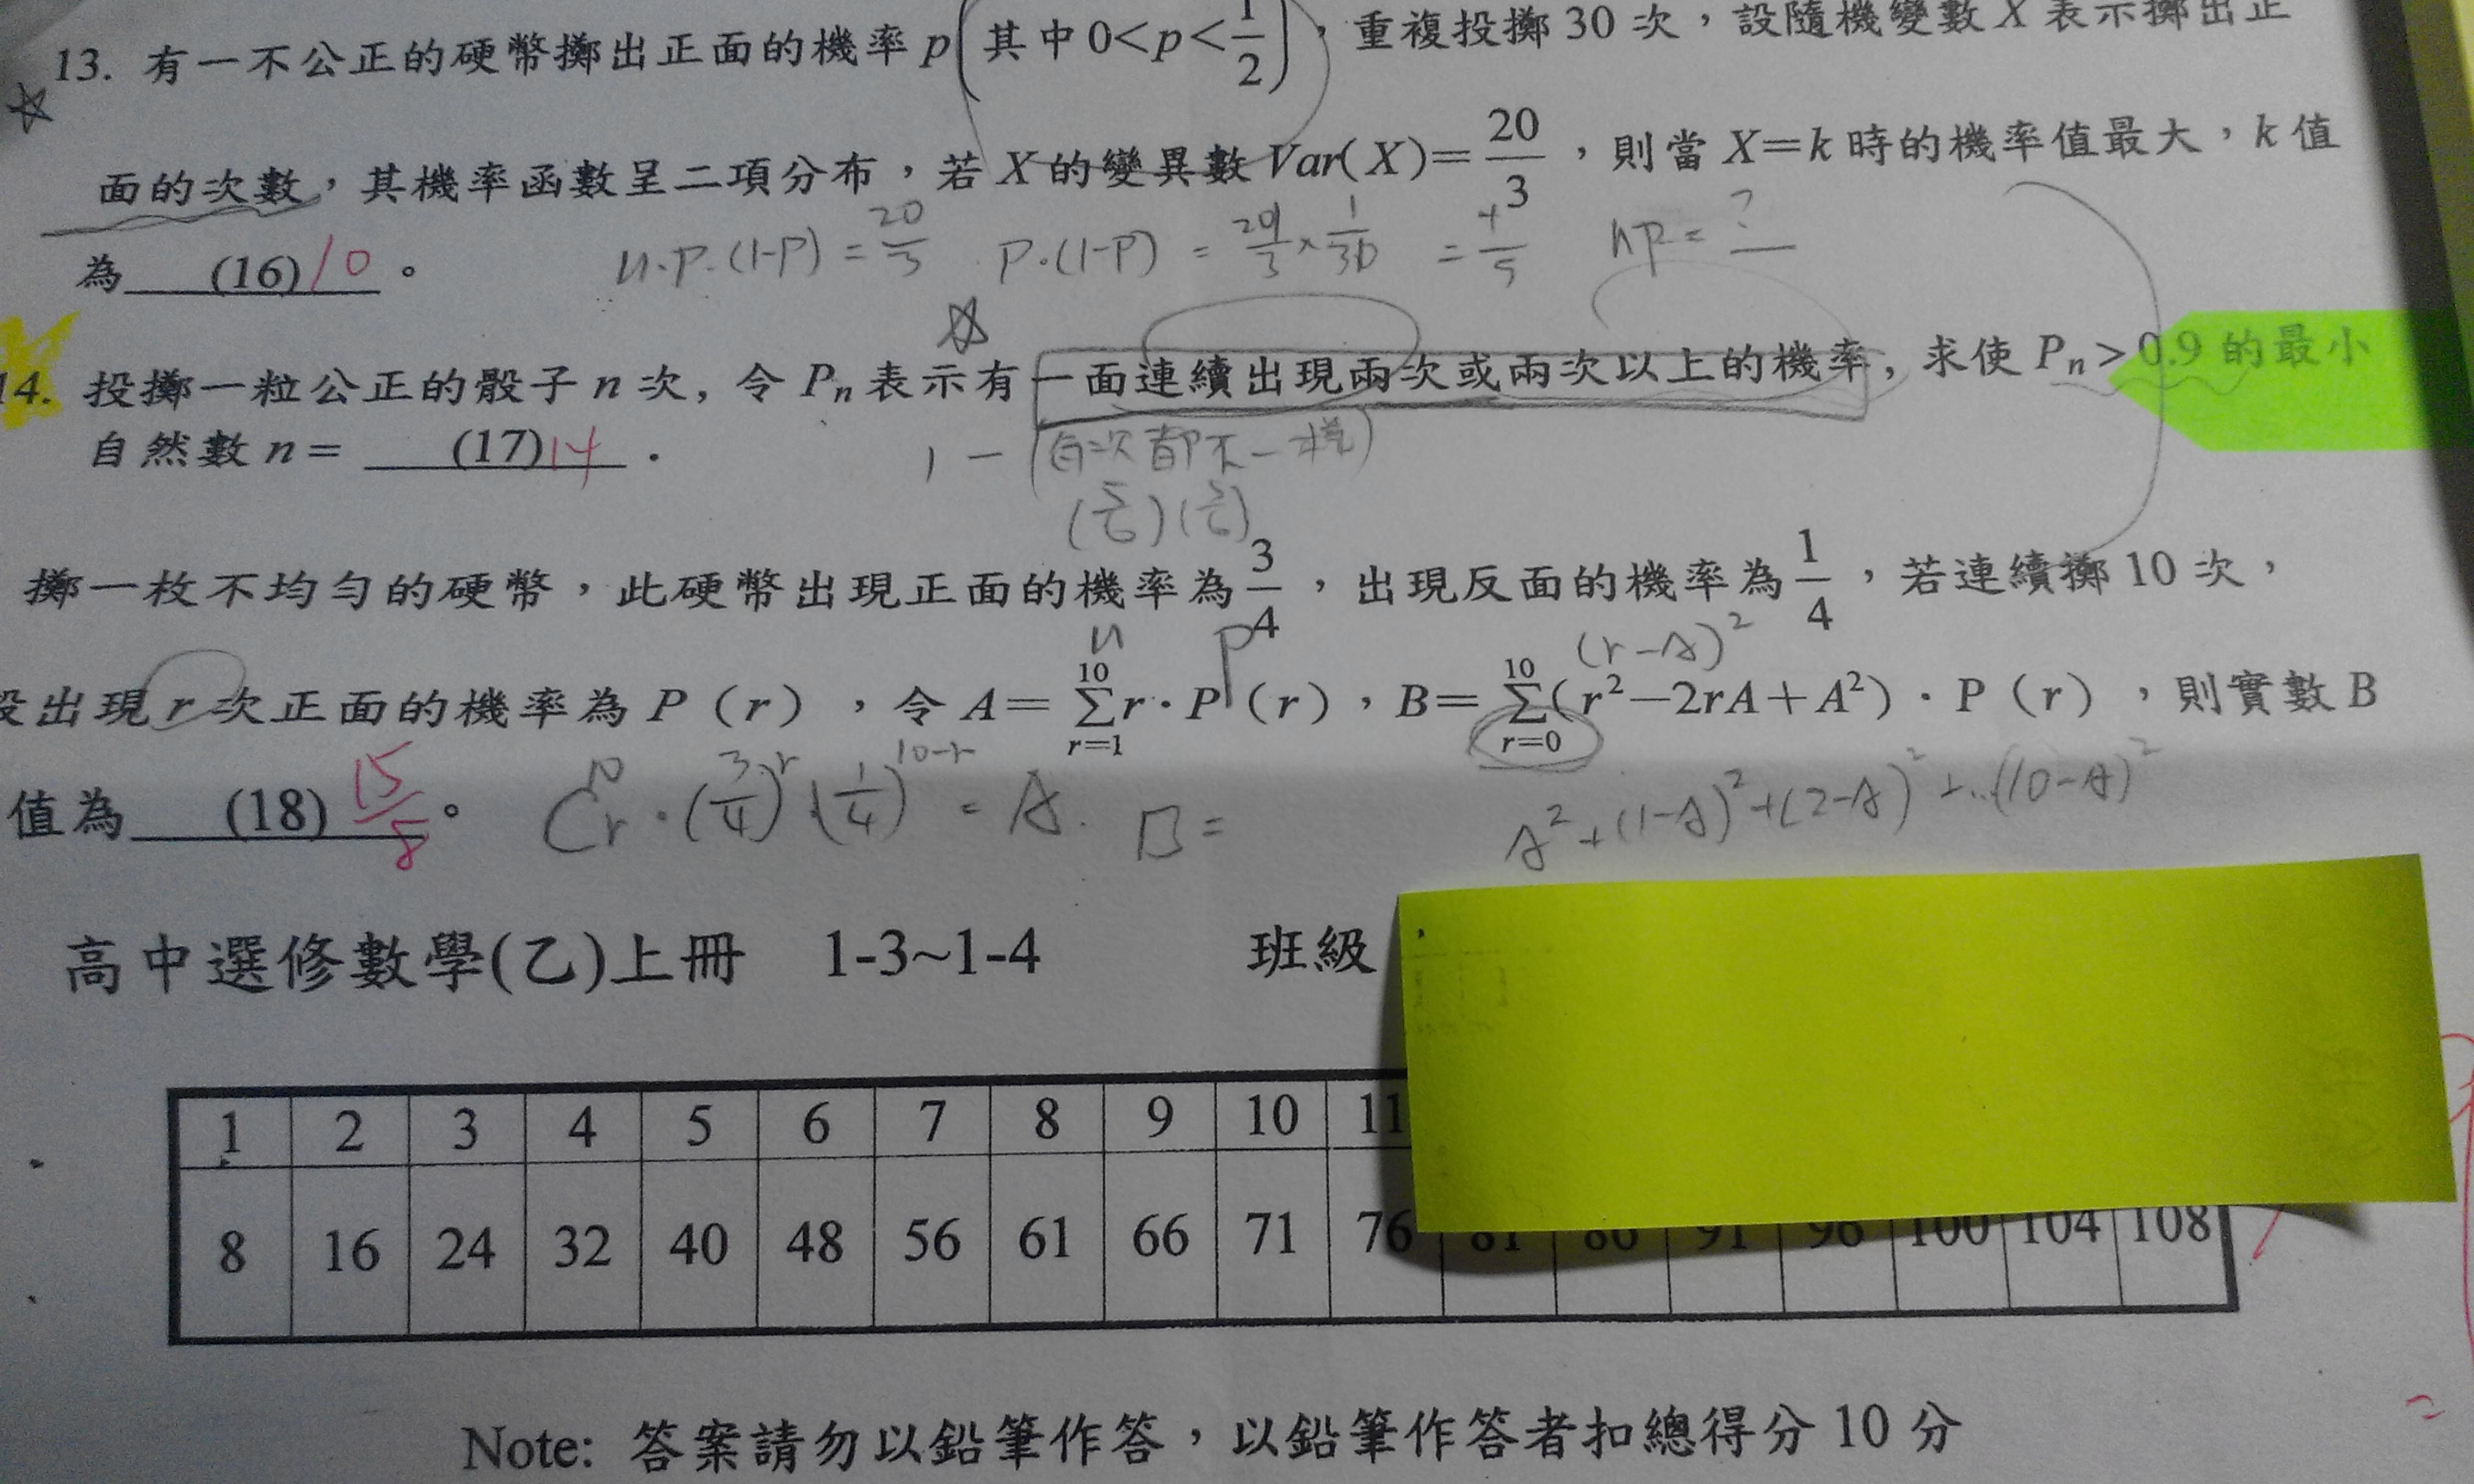 13. 有一不公正的硬幣擲出正面的機率 p(其中 0<p<1/2),重複投擲 30 次,設隨機變數 X 表示擲出正
☆
面的次數,其機率函數呈二項分布,若 X 的變異數 Var(X)=20/3,則當 X=k 時的機率值最大,k 值
為 (16) 10 。
n.p.(1-p) = 20/3 p.(1-p) = 20/3 × 1/30 = 
np = ?
☆
14. 投擲一粒公正的骰子 n 次, 令 Pn 表示有一面連續出現兩次或兩次以上的機率, 求使 Pn > 0.9 的最小
自然數 n = (17) 14 .
1 - (每次都不一樣)
(5/6)(5/6)
擲一枚不均勻的硬幣,此硬幣出現正面的機率為 3/4 ,出現反面的機率為 1/4 ,若連續擲 10 次,
n P (r-A)²
設出現 r 次正面的機率為 P (r) ,令 A= 10Σr=1 r · P (r) ,B= 10Σr=0 (r²−2rA+A²) · P (r) ,則實數 B
值為 (18) 15/8 。
C10r · (3/4)^r (1/4)^10-r = A. B =
A²+(1-A)²+(2-A)²+...(10-A)²
高中選修數學(乙)上冊 1-3~1-4 班級
1 2 3 4 5 6 7 8 9 10 11
8 16 24 32 40 48 56 61 66 71 76 81 86 91 96 100 104 108
Note: 答案請勿以鉛筆作答,以鉛筆作答者扣總得分 10 分